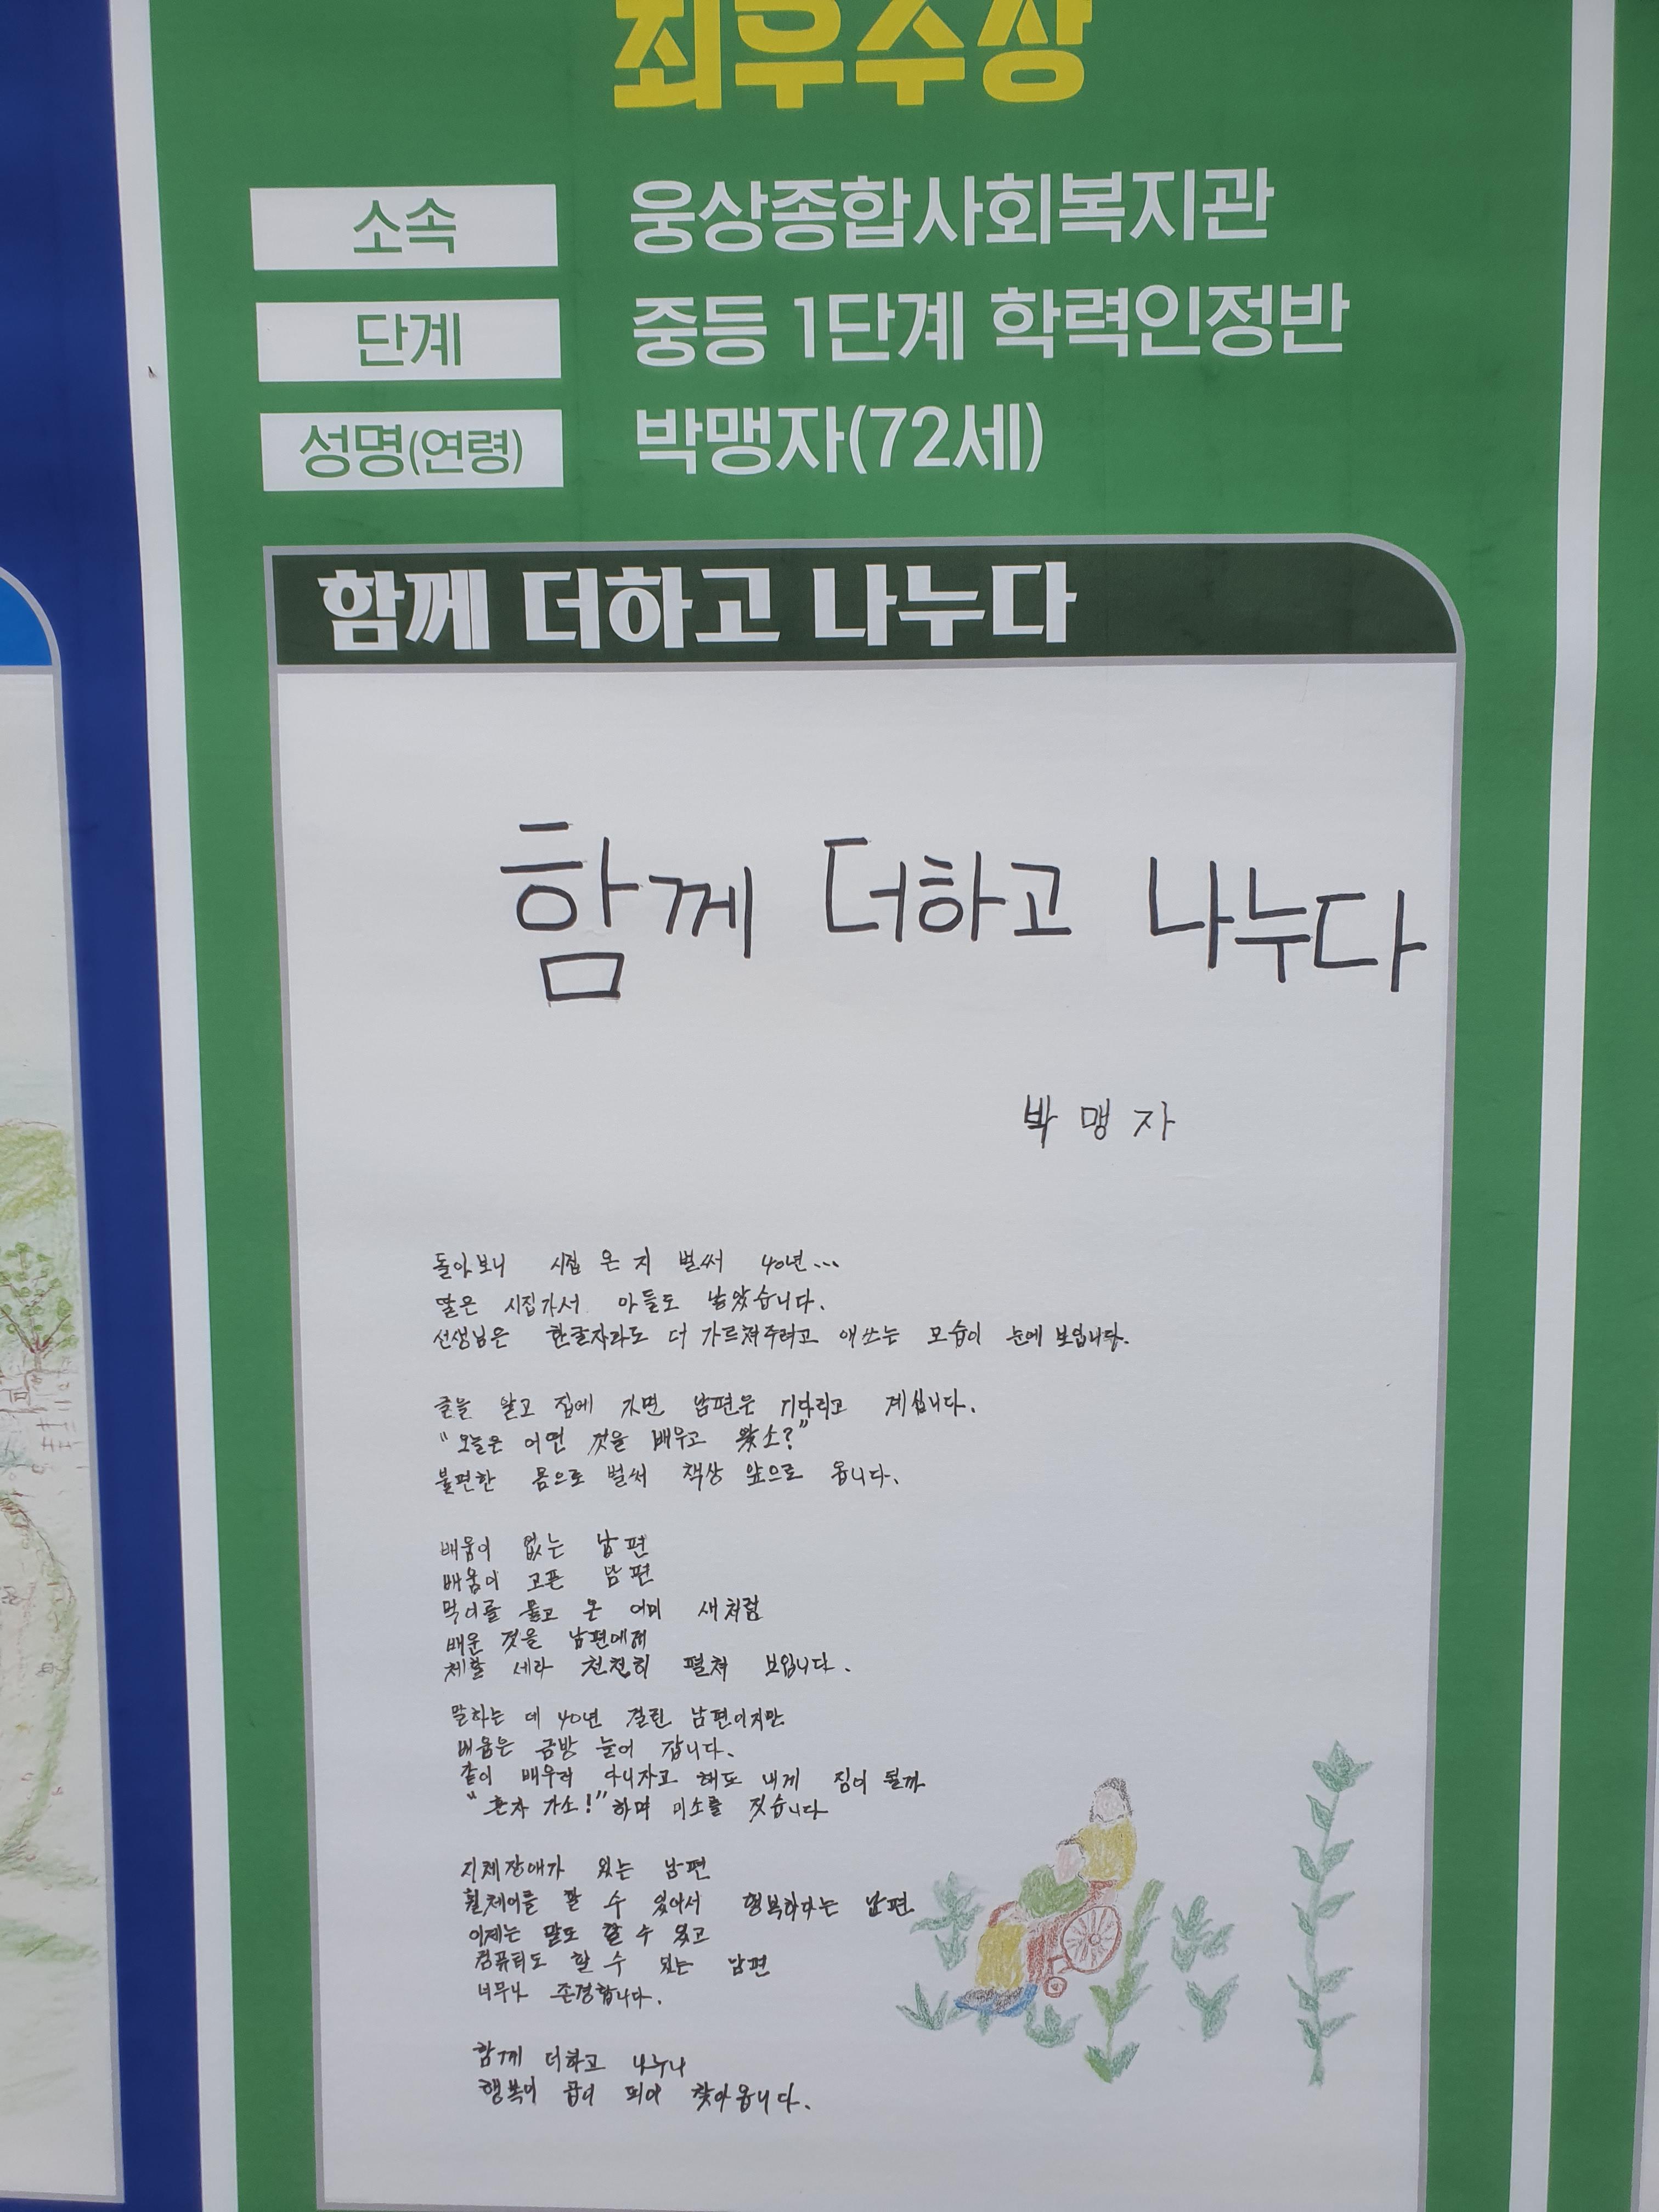 최우수상
소속 웅상종합사회복지관
단계 중등 1단계 학력인정반
성명(연령) 박맹자(72세)
함께 더하고 나누다
함께 더하고 나누다
박 맹 자
돌아보니 시집 온 지 벌써 40년...
딸은 시집가서 아들도 낳았습니다.
선생님은 한글자라도 더 가르쳐주려고 애쓰는 모습이 눈에 보입니다.
글을 알고 집에 가면 남편은 기다리고 계십니다.
"오늘은 어떤 것을 배우고 왔소?"
불편한 몸으로 벌써 책상 앞으로 옵니다.
배움이 없는 남편
배움이 고픈 남편
먹이를 물고 온 어미 새처럼
배운 것을 남편에게
체할 세라 천천히 펼쳐 보입니다.
말하는 데 40년 걸린 남편이지만
배움은 금방 늘어 갑니다.
같이 배우러 다니자고 해도 내게 짐이 될까
"혼자 가소!"하며 미소를 짓습니다
지체장애가 있는 남편
휠체어를 탈 수 있어서 행복하다는 남편
이제는 말도 할 수 있고
컴퓨터도 할 수 있는 남편
너무나 존경합니다.
함께 더하고 나누니
행복이 곱이 되어 찾아옵니다.